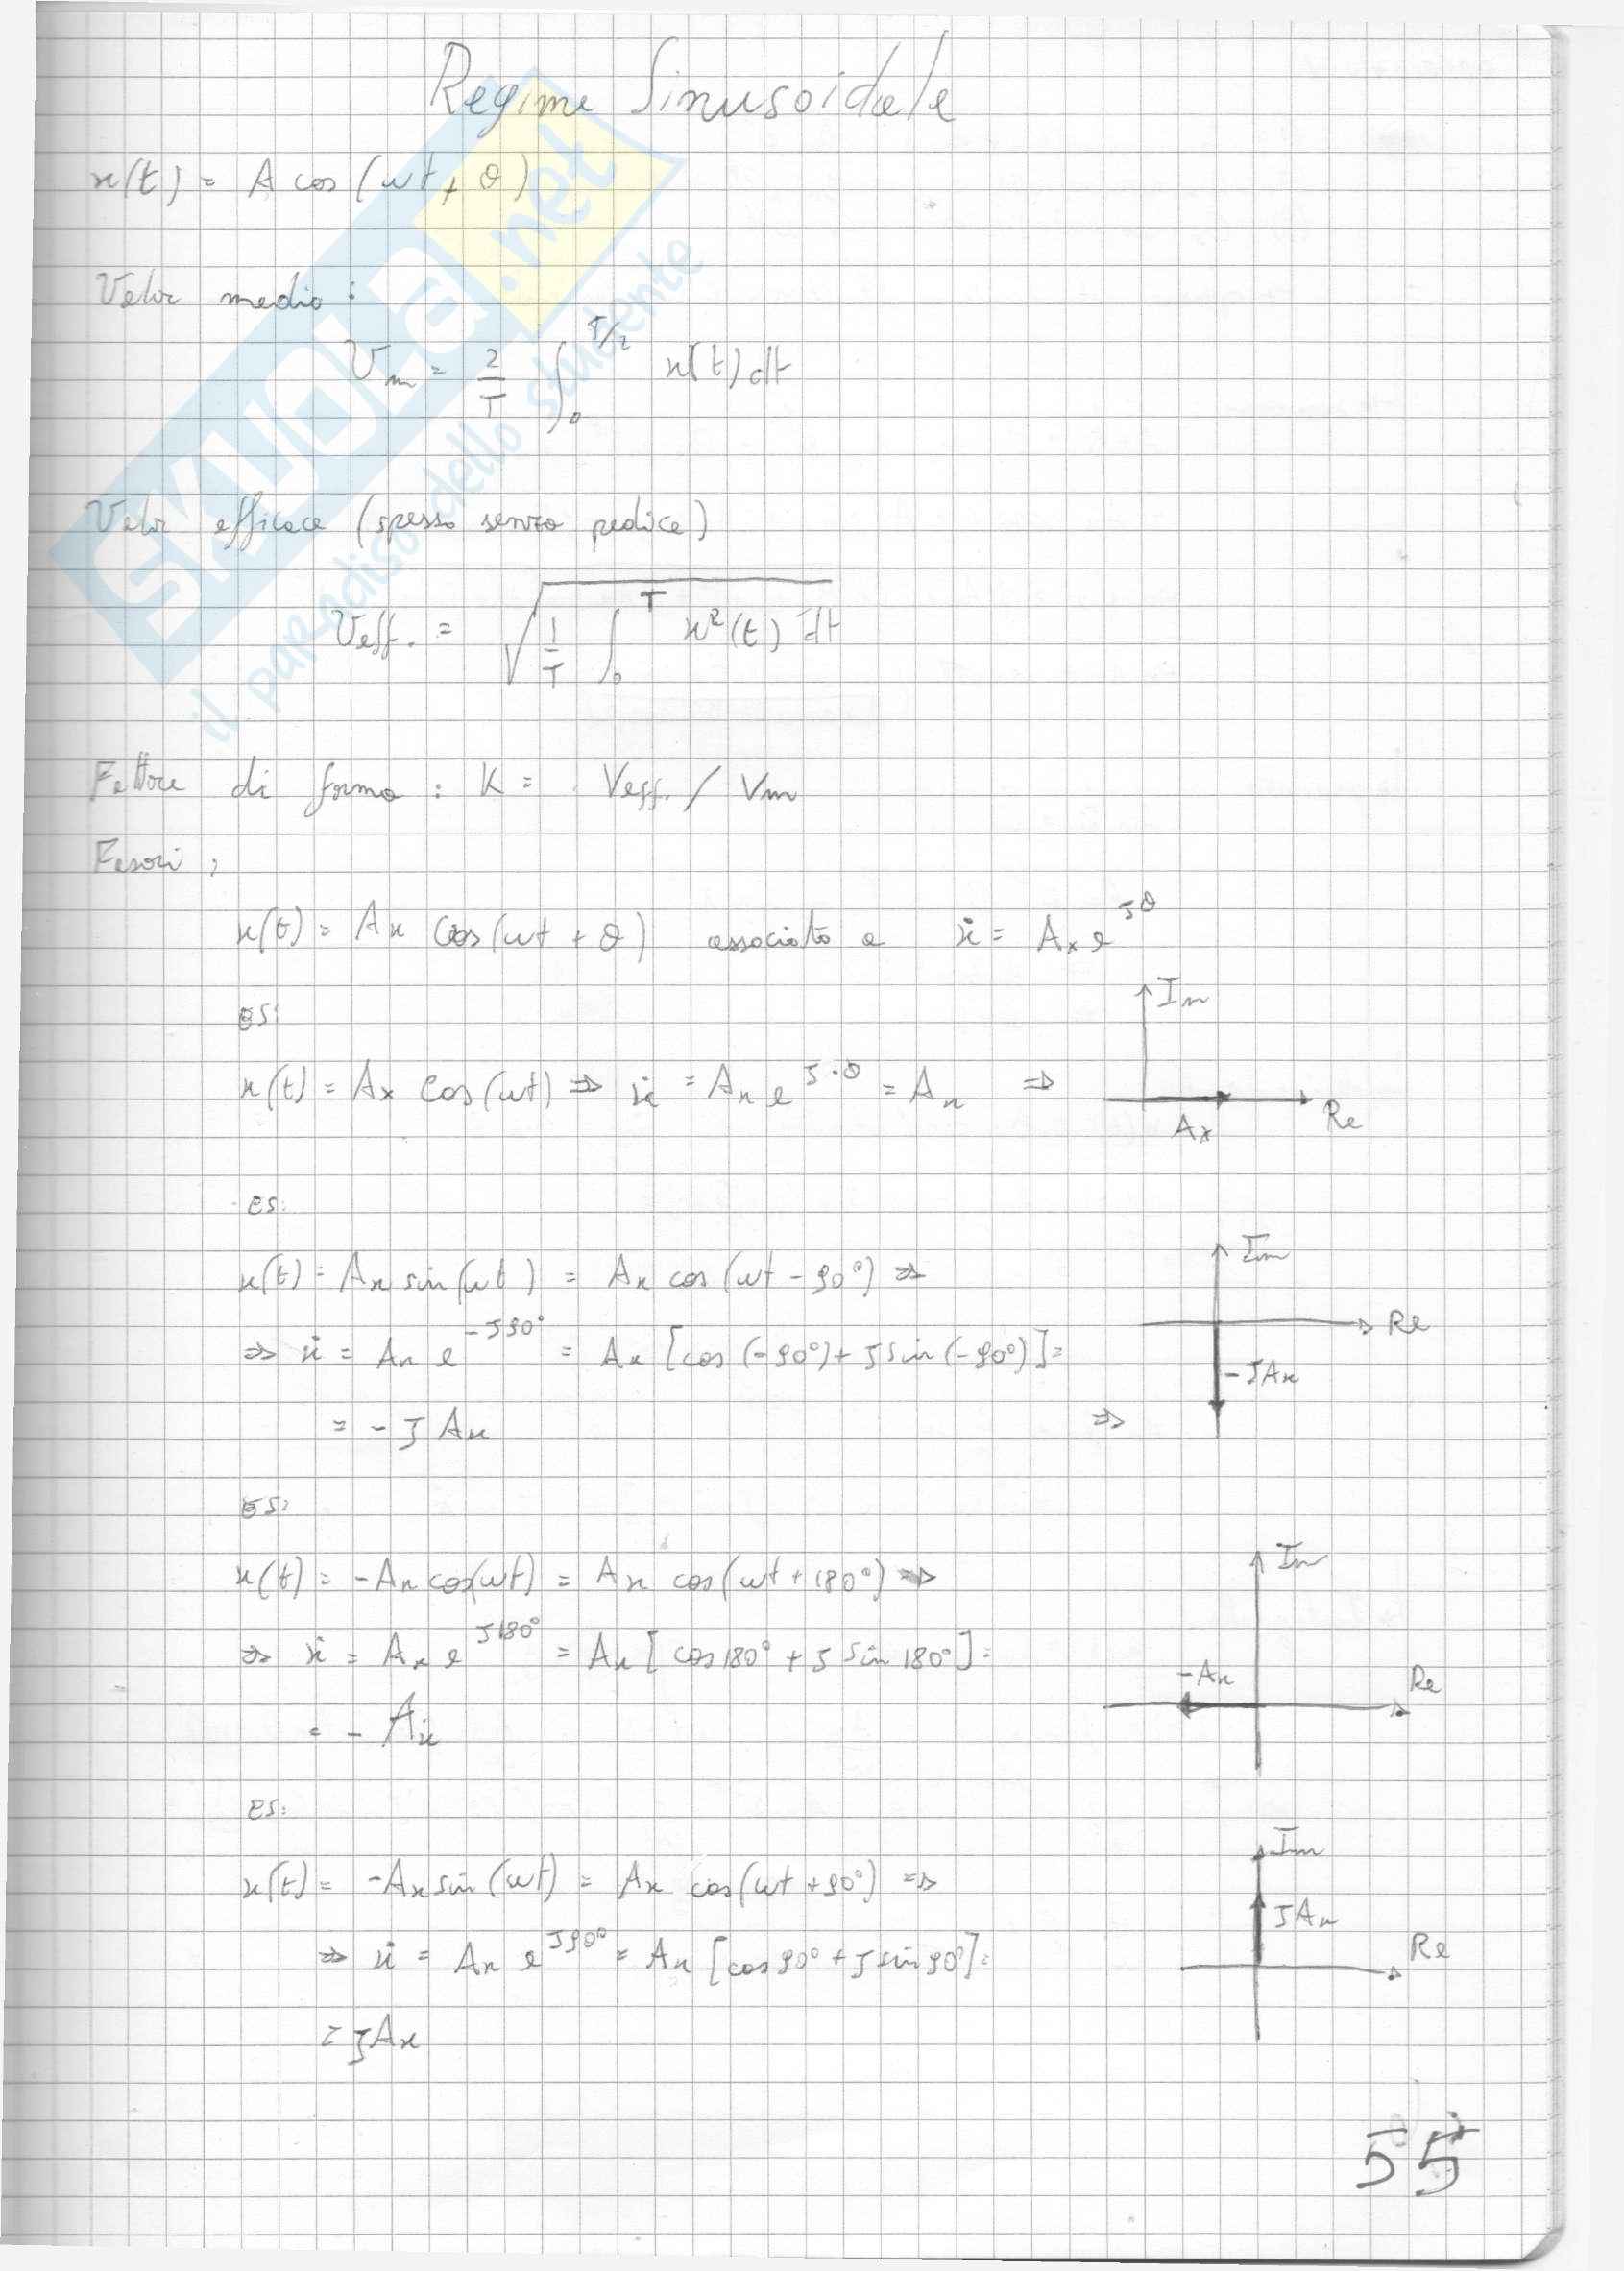 Regime Sinusoidale
x(t) = A cos(ωt + θ)
Valor medio:
Vm = 2/T ∫₀^T/2 x(t) dt
Valor efficace (spesso senza pedice)
Veff. = √(1/T ∫₀^T x²(t) dt)
Fattore di forma : K = Veff. / Vm
Fasori :
x(t) = Ax cos(ωt + θ) associato a ẋ = Ax e^Jθ
ES:
x(t) = Ax cos(ωt) ⇒ ẋ = Ax e^J·0 = Ax ⇒
Im
Ax
Re
ES:
x(t) = Ax sin(ωt) = Ax cos(ωt - 90°) ⇒
⇒ ẋ = Ax e^-J90° = Ax [cos(-90°) + J sin(-90°)] =
= - J Ax ⇒
Im
Re
-JAx
ES:
x(t) = -Ax cos(ωt) = Ax cos(ωt + 180°) ⇒
⇒ ẋ = Ax e^J180° = Ax [cos180° + J sin 180°] =
= - Ax
Im
-Ax
Re
ES:
x(t) = -Ax sin(ωt) = Ax cos(ωt + 90°) ⇒
⇒ ẋ = Ax e^J90° = Ax [cos90° + J sin90°] =
= JAx
Im
JAx
Re
55
SKUOLA.net
il paradiso dello studente